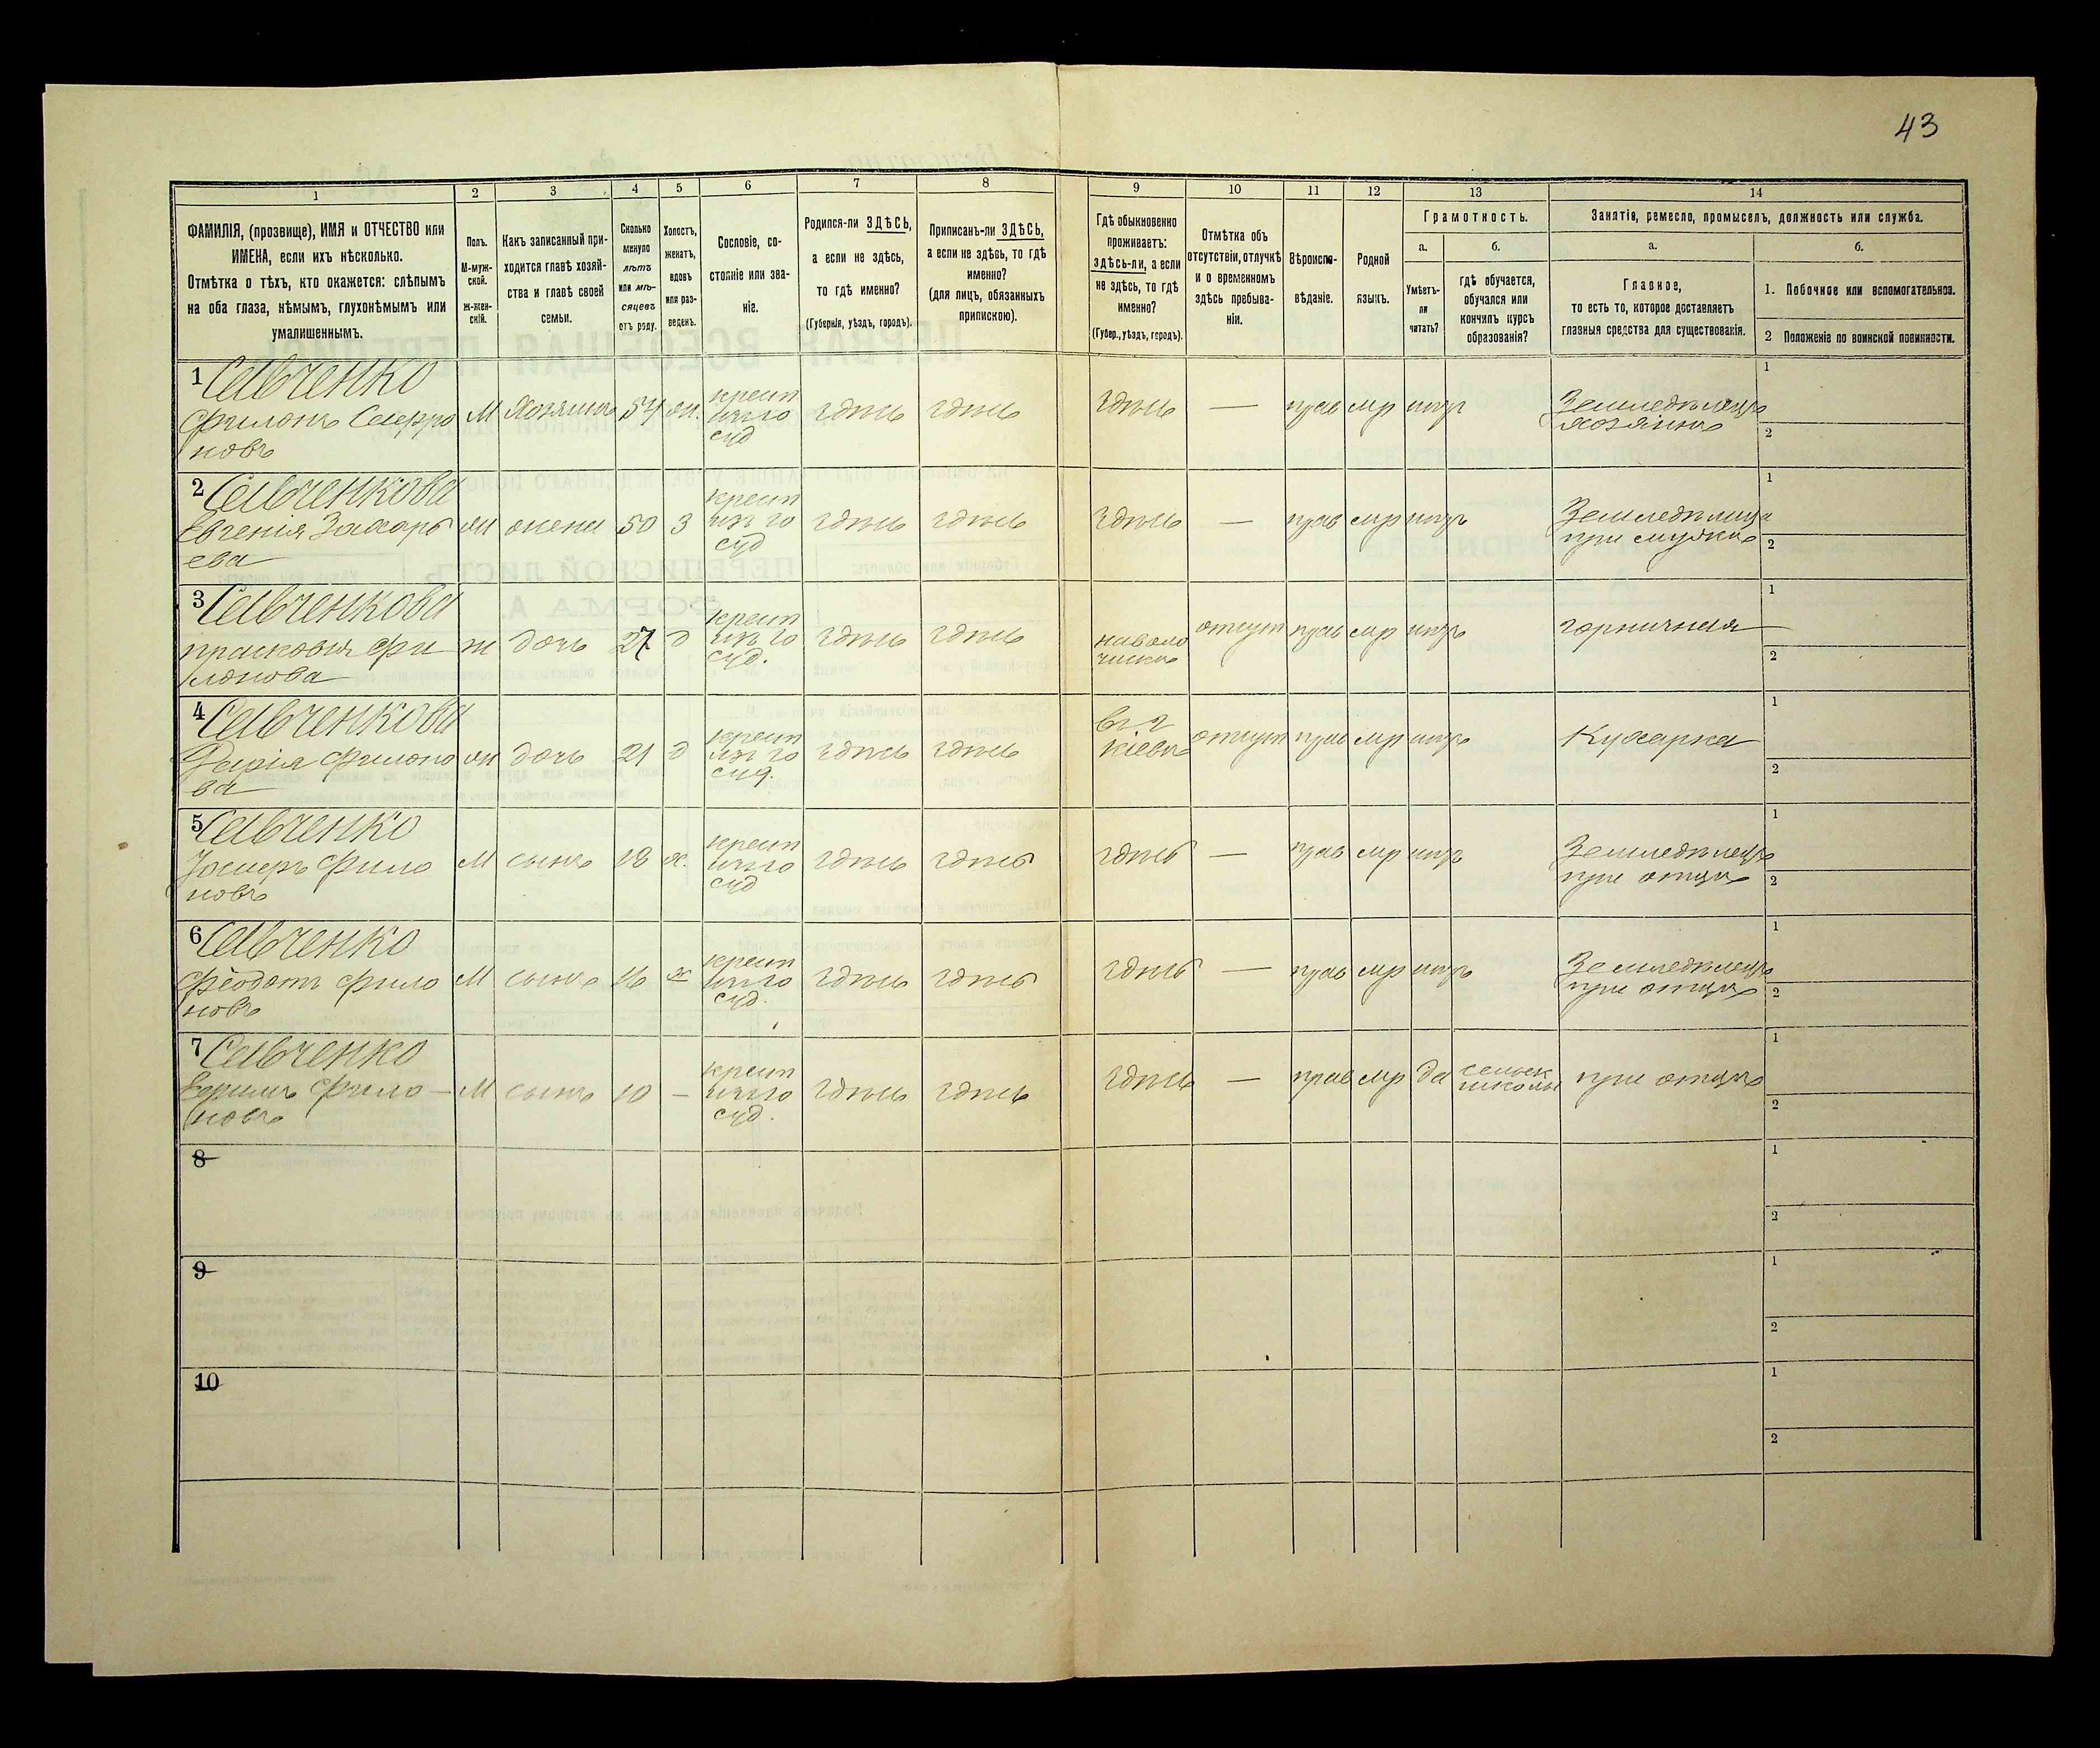 43
1 2 3 4 5 6 7 8 9 10 11 12 13 14
ФАМИЛІЯ, (прозвище), ИМЯ и ОТЧЕСТВО или
ИМЕНА, если ихъ нѣсколько.
Отмѣтка о тѣхъ, кто окажется: слѣпымъ
на оба глаза, нѣмымъ, глухонѣмымъ или
умалишеннымъ.
Полъ.
М-муж-
ской.
Ж-жен-
скій.
Какъ записанный при-
ходится главѣ хозяй-
ства и главѣ своей
семьи.
Сколько
минуло
лѣтъ
или мѣ-
сяцевъ
отъ роду.
Холостъ,
женатъ,
вдовъ
или раз-
веденъ.
Сословіе, со-
стояніе или зва-
ніе.
Родился-ли ЗДѢСЬ,
а если не здѣсь,
то гдѣ именно?
(Губернія, уѣздъ, городъ).
Приписанъ-ли ЗДѢСЬ,
а если не здѣсь, то гдѣ
именно?
(для лицъ, обязанныхъ
припискою).
Гдѣ обыкновенно
проживаетъ:
здѣсь-ли, а если
не здѣсь, то гдѣ
именно?
(Губер., уѣздъ, городъ).
Отмѣтка объ
отсутствіи, отлучкѣ
и о временномъ
здѣсь пребыва-
ніи.
Вѣроиспо-
вѣданіе.
Родной
языкъ.
Грамотность.
а.
Умѣетъ-
ли
читать?
б.
гдѣ обучается,
обучался или
кончилъ курсъ
образованія?
Занятія, ремесло, промыселъ, должность или служба.
а.
Главное,
то есть то, которое доставляетъ
главныя средства для существованія.
б.
1. Побочное или вспомогательное.
2 Положеніе по воинской повинности.
1 Савченко
Филонъ
новъ
М Хозяинъ 54 жен.
крест
суд
здѣсь здѣсь здѣсь — прав мр нѣтъ
Земледѣлецъ
хозяинъ
1
2
2 Савченкова
Евгенія Захарь
ева
ж жена 50 З
крест
суд
здѣсь здѣсь здѣсь — прав мр нѣтъ
Земледѣлица
при мужѣ
1
2
3 Савченкова
прасковья Фи
лонова
ж дочь 27 д
крест
суд.
здѣсь здѣсь
отсут прав мр нѣтъ
горничная
1
2
4 Савченкова
Дарія Филоно
ва
ж дочь 21 д
крест
суд.
здѣсь здѣсь
въ г
Кіевѣ
отсут прав мр нѣтъ
Кухарка
1
2
5 Савченко
Іосифъ Фило
новъ
М сынъ 18 х.
крест
суд
здѣсь здѣсь здѣсь — прав мр нѣтъ
Земледѣлецъ
при отцѣ
1
2
6 Савченко
Феодотъ Фило
новъ
М сынъ 16 х
крест
суд.
здѣсь здѣсь здѣсь — прав мр нѣтъ
Земледѣлецъ
при отцѣ
1
2
7 Савченко
Ефимъ Фило —
новъ
М сынъ 10 —
крест
суд.
здѣсь здѣсь здѣсь — прав мр да
сельск
школы
при отцѣ
1
2
8
1
2
9
1
2
10
1
2